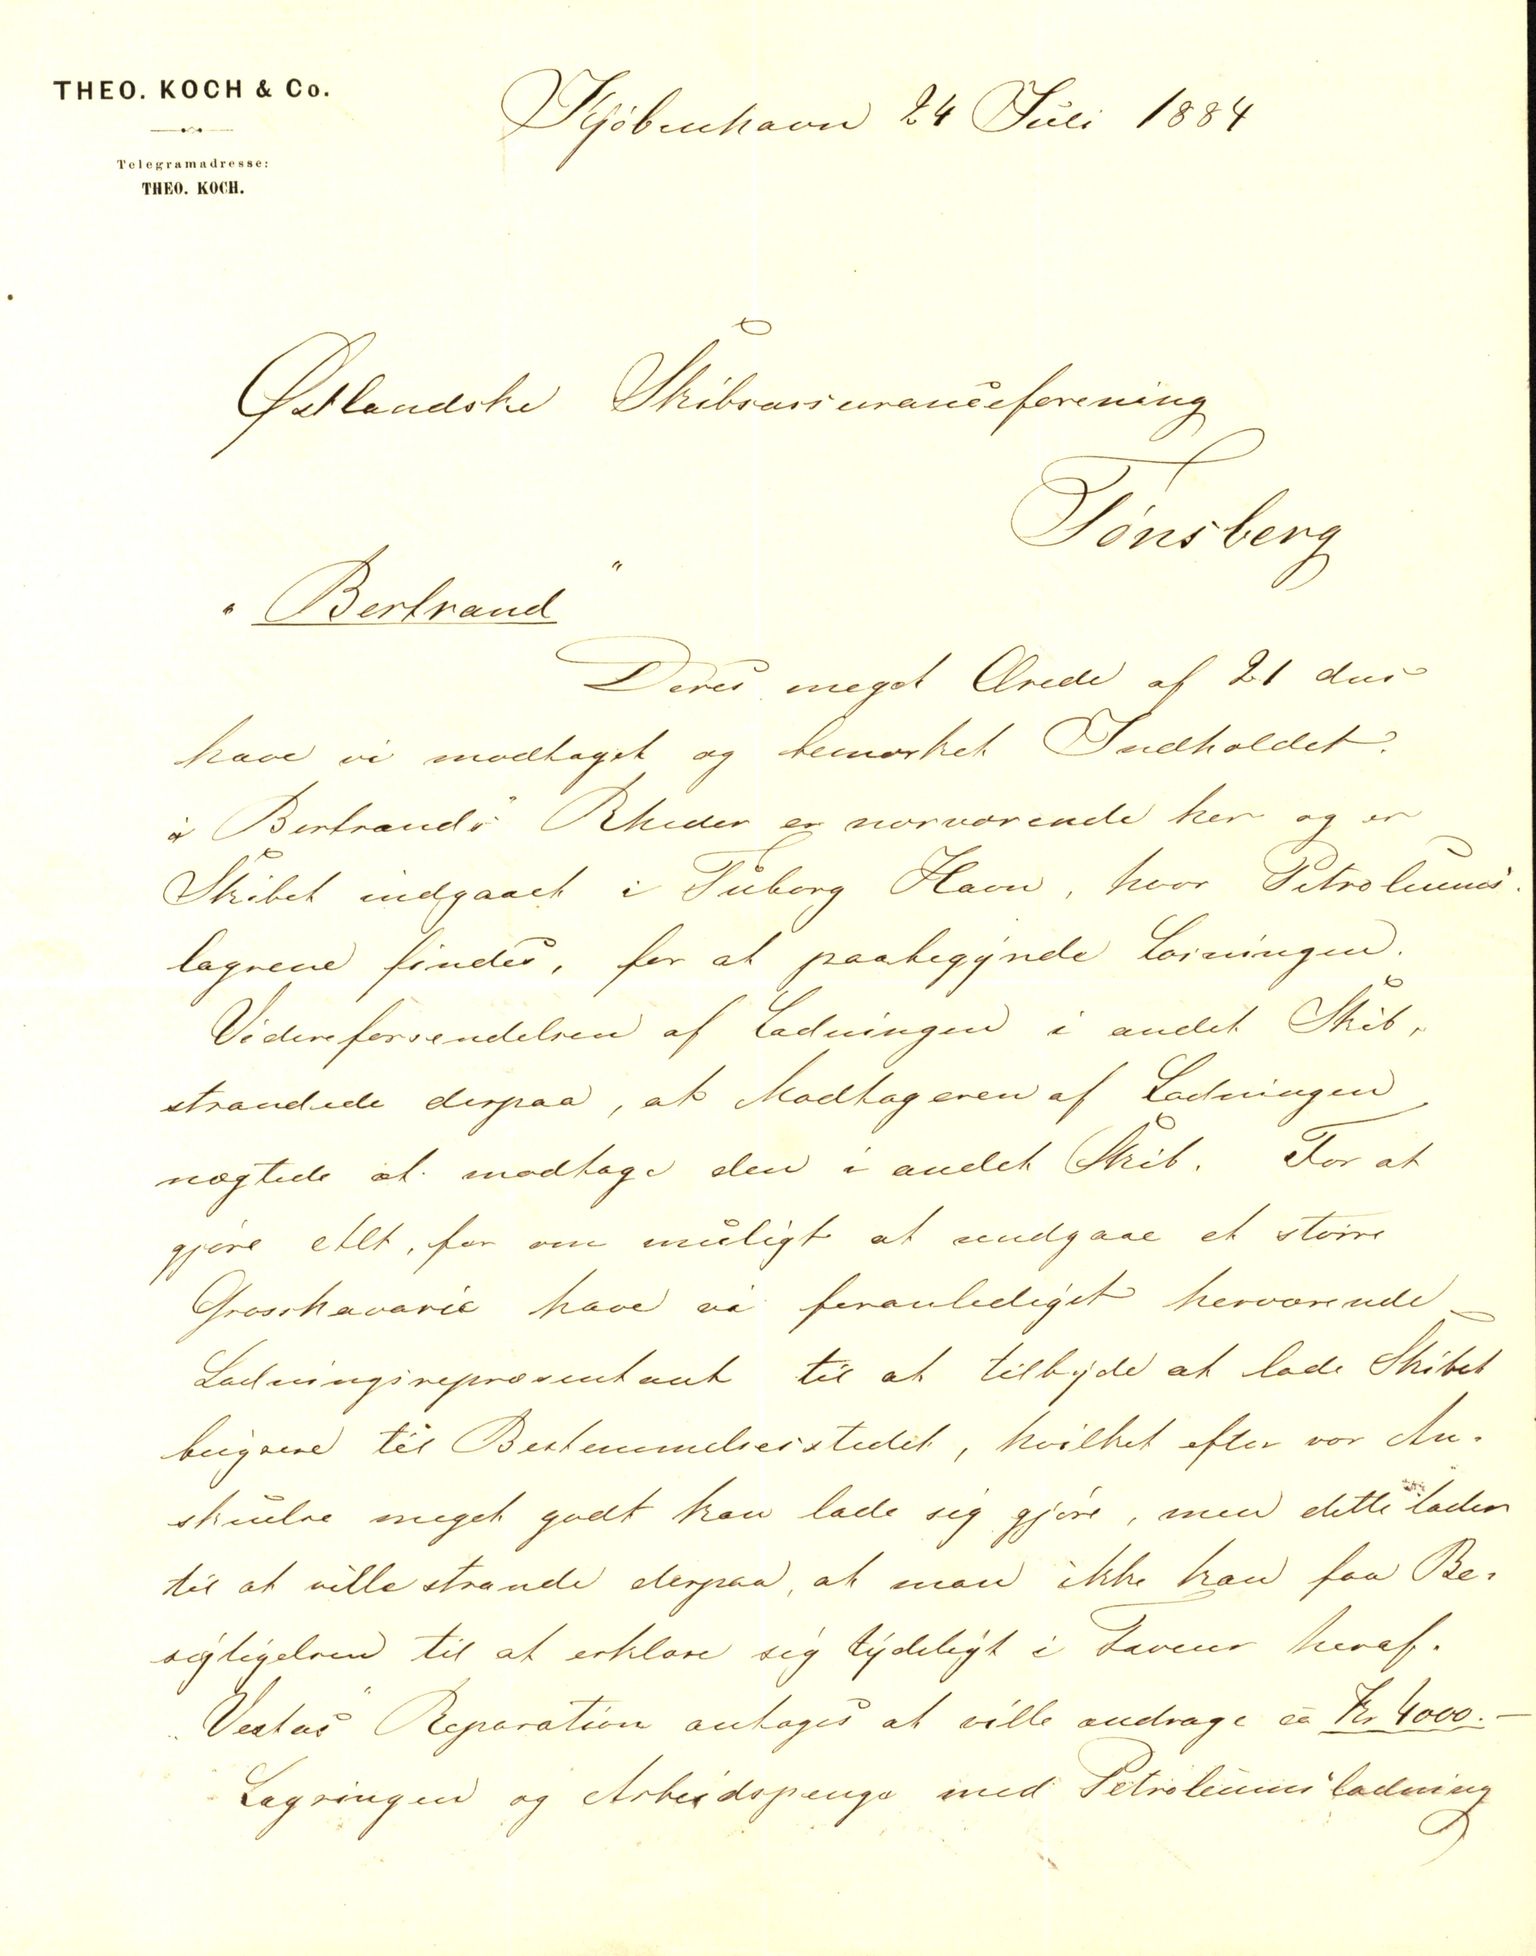 THEO. KOCH & Co.
Telegramadresse:
THEO. KOCH.
Kjöbenhavn 24 Juli 1884
Østlandske Skibsassuranceforening
Tönsberg
"Bertrand"
Deres meget Ærede af 21 ds
have vi modtaget og bemærket Indholdet.
"Bertrands" Rheder er nærværende her og er
Skibet indgaaet i Tuborg Havn, hvor Petroleums-
lagrene findes, for at paabegynde Losningen.
Videreforsendelsen af Ladningen i andet Skib,
strandede derpaa, at Modtageren af Ladningen
nægtede at modtage den i andet Skib. For at
gjøre Alt, for om muligt at undgaae et större
Grosshavarie have vi foranlediget herværende
Ladningsrepræsentant til at tilbyde at lade Skibet
bugsere til Bestemmelsesstedet, hvilket efter vor An-
skuelse meget godt kan lade sig gjøre, men dette lader
til at ville strande derpaa, at man ikke kan faa Be-
sigtigelsen til at erklære sig tydeligt i Faveur heraf.
"Vestas" Reparation antages at ville andrage ca Kr 4000.—
Lagringen og Arbeidspenge med Petroleumsladning